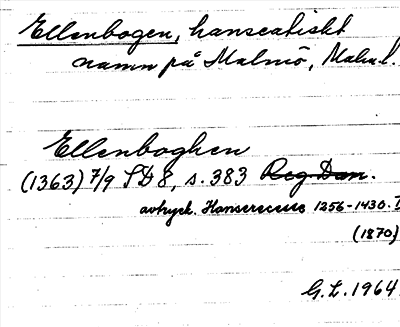 Ellenbogen, hanseatiskt
namn på Malmö, Malm l.
Ellenboghen
(1363) 7/9 SD 8, s. 383 Reg. Dan.
avtryck. Hanserecesse 1256-1430. I
(1870)
G. L. 1964